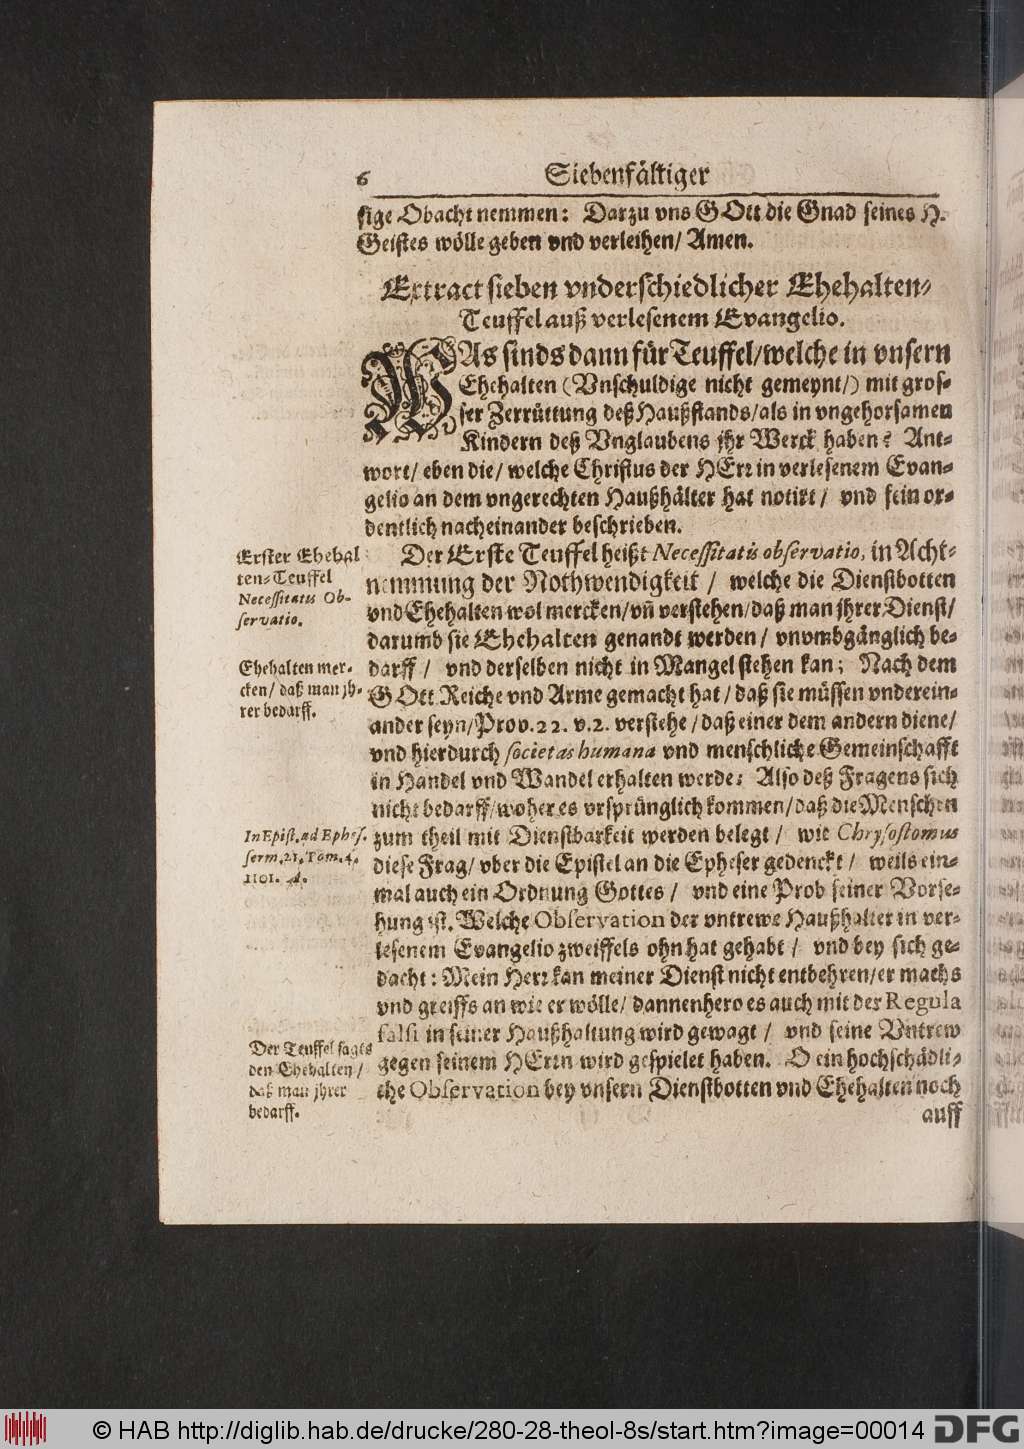 6 Siebenfältiger
sige Obacht nemmen: Darzu vns GOtt die Gnad seines H.
Geistes wölle geben vnd verleihen/ Amen.
Extract sieben vnderschiedlicher Ehehalten-
Teuffel auß verlesenem Evangelio.
WAs sinds dann für Teuffel/welche in vnsern
Ehehalten (Vnschuldige nicht gemeynt/) mit gros-
ser Zerrüttung deß Haußstands/als in vngehorsamen
Kindern deß Vnglaubens jhr Werck haben? Ant-
wort/ eben die/ welche Christus der HErr in verlesenem Evan-
gelio an dem vngerechten Haußhälter hat notirt/ vnd fein or-
dentlich nacheinander beschrieben.
Erster Ehehal
ten-Teuffel
Necessitatis Ob-
servatio.
Der Erste Teuffel heißt Necessitatis observatio, in Acht-
nemmung der Nothwendigkeit / welche die Dienstbotten
vnd Ehehalten wol mercken/vñ verstehen/daß man jhrer Dienst/
darumb sie Ehehalten genandt werden/ vnvmbgänglich be-
Ehehalten mer-
cken/ daß man jh-
rer bedarff.
darff / vnd derselben nicht in Mangel stehen kan; Nach dem
GOtt Reiche vnd Arme gemacht hat/ daß sie müssen vnderein-
ander seyn/Prov.22. v.2. verstehe/ daß einer dem andern diene/
vnd hierdurch societas humana vnd menschliche Gemeinschafft
in Handel vnd Wandel erhalten werde: Also deß Fragens sich
nicht bedarff/woher es vrsprünglich kommen/daß die Menschen
In Epist. ad Ephes.
serm. 21. Tom. 4.
1101. A.
zum theil mit Dienstbarkeit werden belegt/ wie Chrysostomus
diese Frag/ vber die Epistel an die Epheser gedenckt/ weils ein-
mal auch ein Ordnung Gottes / vnd eine Prob seiner Vorse-
hung ist. Welche Observation der vntrewe Haußhalter in ver-
lesenem Evangelio zweiffels ohn hat gehabt / vnd bey sich ge-
dacht: Mein Herr kan meiner Dienst nicht entbehren/er machs
vnd greiffs an wie er wölle/ dannenhero es auch mit der Regula
falsi in seiner Haußhaltung wird gewagt / vnd seine Vntrew
Der Teuffel sagts
den Ehehalten /
daß man jhrer
bedarff.
gegen seinem HErrn wird gespielet haben. O ein hochschädli-
che Observation bey vnsern Dienstbotten vnd Ehehalten noch
auff
© HAB http://diglib.hab.de/drucke/280-28-theol-8s/start.htm?image=00014 DFG